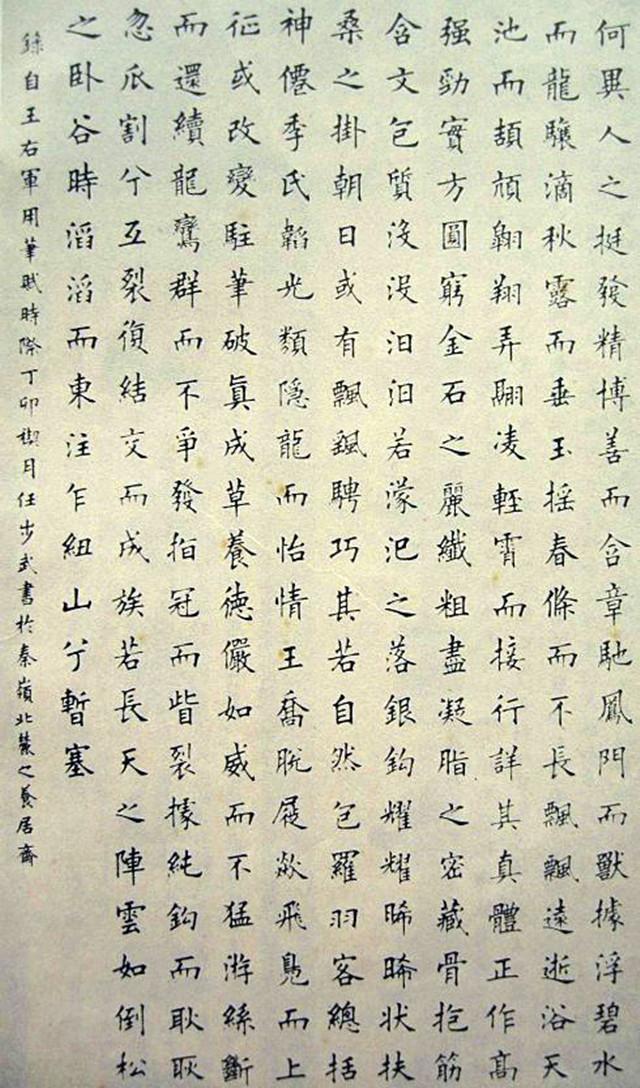 何異人之挺發精博善而含章馳鳳門而獸據浮碧水
而龍驤滴秋露而垂玉搖春條而不長飄飄遠逝浴天
池而頡頏翱翔弄翮凌輕霄而接行詳其真體正作高
强勁實方圓窮金石之麗纖粗盡凝脂之密藏骨抱筋
含文包質沒沒汩汩若濛汜之落銀鈎耀耀晞晞状扶
桑之掛朝日或有飄飖騁巧其若自然包羅羽客總括
神僊季氏韜光類隱龍而怡情王喬脫屣欻飛鳧而上
征或改變駐筆破真成草養德儼如威而不猛游絲斷
而還續龍鸞群而不爭發指冠而眥裂據純鈎而耿耿
忽瓜割兮互裂復結交而成族若長天之陣雲如倒松
之卧谷時滔滔而東注乍紐山兮暫塞
錄自王右軍用筆賦時際丁卯月任步武書於秦嶺北麓之養居齋